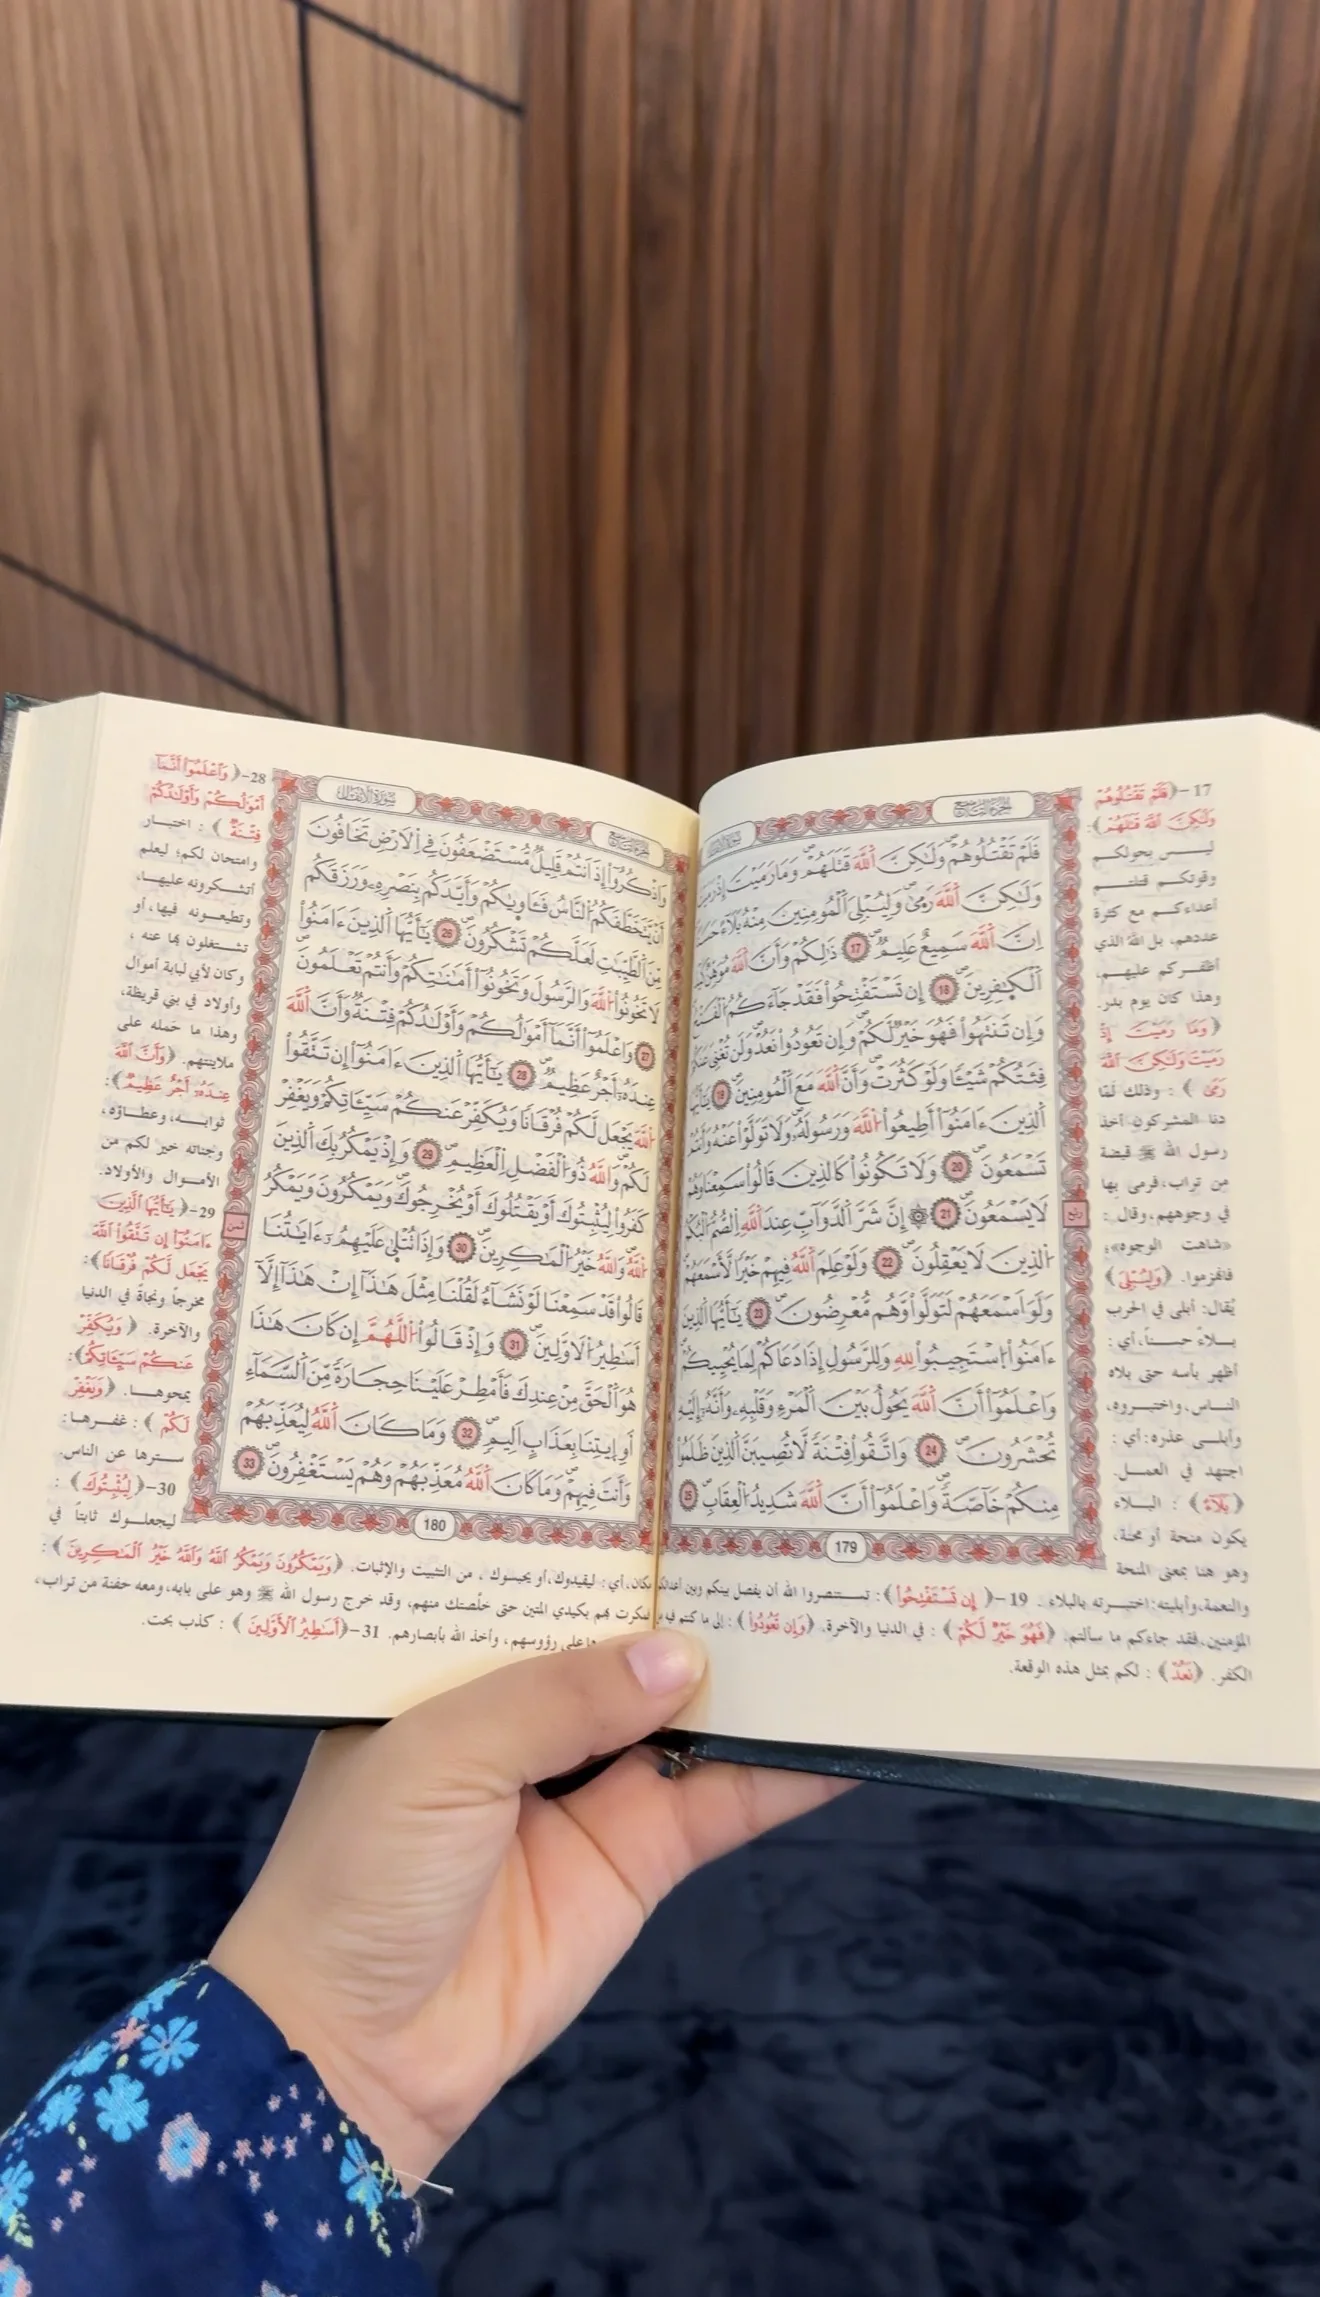 الجزء التاسع
سورة الأنفال
فَلَمْ تَقْتُلُوهُمْ وَلَٰكِنَّ اَ۬للَّهَ قَتَلَهُمْ وَمَا رَمَيْتَ إِذْ
وَلَٰكِنَّ اَ۬للَّهَ رَمَىٰ وَلِيُبْلِيَ اَ۬لْمُومِنِينَ مِنْهُ بَلَآءً
إِنَّ اَ۬للَّهَ سَمِيعٌ عَلِيمٌ 17 ذَٰلِكُمْ وَأَنَّ اَ۬للَّهَ مُوَهِّنٌ
اَ۬لْكٰ۪فِرِينَ 18 إِن تَسْتَفْتِحُواْ فَقَدْ جَآءَكُمُ
وَإِن تَنتَهُواْ فَهُوَ خَيْرٌ لَّكُمْ وَإِن تَعُودُواْ نَعُدْ وَلَن تُغْنِيَ
فِئَتُكُمْ شَيْئًا وَلَوْ كَثُرَتْ وَأَنَّ اَ۬للَّهَ مَعَ اَ۬لْمُومِنِينَ 19
اَ۬لذِينَ ءَامَنُواْ أَطِيعُواْ اُ۬للَّهَ وَرَسُولَهُۥ وَلَا تَوَلَّوْاْ عَنْهُ وَأَنتُمْ
تَسْمَعُونَ 20 وَلَا تَكُونُواْ كَالذِينَ قَالُواْ سَمِعْنَا وَهُمْ
لَا يَسْمَعُونَ 21 إِنَّ شَرَّ اَ۬لدَّوَآبِّ عِندَ اَ۬للَّهِ اِ۬لصُّمُّ اُ۬لْبُكْمُ
اُ۬لذِينَ لَا يَعْقِلُونَ 22 وَلَوْ عَلِمَ اَ۬للَّهُ فِيهِمْ خَيْرًا لَّأَسْمَعَهُمْ
وَلَوَ اَسْمَعَهُمْ لَتَوَلَّواْ وَّهُم مُّعْرِضُونَ 23 يَٰٓأَيُّهَا اَ۬لذِينَ
ءَامَنُواْ اُ۪سْتَجِيبُواْ لِلهِ وَلِلرَّسُولِ إِذَا دَعَاكُمْ لِمَا يُحْيِيكُمْ
وَاعْلَمُوٓاْ أَنَّ اَ۬للَّهَ يَحُولُ بَيْنَ اَ۬لْمَرْءِ وَقَلْبِهِۦ وَأَنَّهُۥٓ إِلَيْهِ
تُحْشَرُونَ 24 وَاتَّقُواْ فِتْنَةً لَّا تُصِيبَنَّ اَ۬لذِينَ ظَلَمُواْ
مِنكُمْ خَآصَّةً وَاعْلَمُوٓاْ أَنَّ اَ۬للَّهَ شَدِيدُ اُ۬لْعِقَابِ 25
179
17-﴿فَلَمْ تَقْتُلُوهُمْ
وَلَٰكِنَّ اللَّهَ قَتَلَهُمْ﴾:
ليس بحولكم
وقوتكم قتلتم
أعداءكم مع كثرة
عددهم، بل الله الذي
أظفركم عليهم،
وهذا كان يوم بدر.
﴿وَمَا رَمَيْتَ إِذْ
رَمَيْتَ وَلَٰكِنَّ اللَّهَ
رَمَىٰ﴾: وذلك لما
دنا المشركون أخذ
رسول الله ﷺ قبضة
من تراب، فرمى بها
في وجوههم، وقال:
«شاهت الوجوه»؛
فانهزموا. ﴿وَلِيُبْلِيَ﴾
يُقال: أبلى في الحرب
بلاءً حسناً، أي:
أظهر بأسه حتى بلاه
الناس، واختبروه،
وأبلى عذره: أي:
اجتهد في العمل.
﴿بَلَاءً﴾: البلاء
يكون منحة أو محنة،
وهو هنا بمعنى المنحة
والنعمة، وأبليته: اختبرته بالبلاء. 19-﴿إِن تَسْتَفْتِحُوا﴾: تستنصروا الله أن يفصل بينكم وبين
المؤمنين، فقد جاءكم ما سألتم. ﴿فَهُوَ خَيْرٌ لَّكُمْ﴾: في الدنيا والآخرة. ﴿وَإِن تَعُودُوا﴾: إلى ما كنتم فيه
الكفر. ﴿نَعُدْ﴾: لكم بمثل هذه الوقعة.
الجزء التاسع
سورة الأنفال
وَاذْكُرُوٓاْ إِذَ اَنتُمْ قَلِيلٌ مُّسْتَضْعَفُونَ فِي اِ۬لَارْضِ تَخَافُونَ
أَنْ يَّتَخَطَّفَكُمُ اُ۬لنَّاسُ فَـَٔاو۪يٰكُمْ وَأَيَّدَكُم بِنَصْرِهِۦ وَرَزَقَكُم
مِّنَ اَ۬لطَّيِّبَٰتِ لَعَلَّكُمْ تَشْكُرُونَ 26 يَٰٓأَيُّهَا اَ۬لذِينَ ءَامَنُواْ
لَا تَخُونُواْ اُ۬للَّهَ وَالرَّسُولَ وَتَخُونُوٓاْ أَمَٰنَٰتِكُمْ وَأَنتُمْ تَعْلَمُونَ
27 وَاعْلَمُوٓاْ أَنَّمَآ أَمْوَٰلُكُمْ وَأَوْلَٰدُكُمْ فِتْنَةٌ وَأَنَّ اَ۬للَّهَ
عِندَهُۥٓ أَجْرٌ عَظِيمٌ 28 يَٰٓأَيُّهَا اَ۬لذِينَ ءَامَنُوٓاْ إِن تَتَّقُواْ
اُ۬للَّهَ يَجْعَل لَّكُمْ فُرْقَانًا وَيُكَفِّرْ عَنكُمْ سَيِّـَٔاتِكُمْ وَيَغْفِرْ
لَكُمْ وَاللَّهُ ذُو اُ۬لْفَضْلِ اِ۬لْعَظِيمِ 29 وَإِذْ يَمْكُرُ بِكَ اَ۬لذِينَ
كَفَرُواْ لِيُثْبِتُوكَ أَوْ يَقْتُلُوكَ أَوْ يُخْرِجُوكَ وَيَمْكُرُونَ وَيَمْكُرُ
اُ۬للَّهُ وَاللَّهُ خَيْرُ اُ۬لْمَٰكِرِينَ 30 وَإِذَا تُتْل۪يٰ عَلَيْهِمُۥٓ ءَايَٰتُنَا
قَالُواْ قَدْ سَمِعْنَا لَوْ نَشَآءُ لَقُلْنَا مِثْلَ هَٰذَآ إِنْ هَٰذَآ إِلَّآ
أَسَٰطِيرُ اُ۬لَاوَّلِينَ 31 وَإِذْ قَالُواْ اُ۬للَّهُمَّ إِن كَانَ هَٰذَا
هُوَ اَ۬لْحَقَّ مِنْ عِندِكَ فَأَمْطِرْ عَلَيْنَا حِجَارَةً مِّنَ اَ۬لسَّمَآءِ
اَوِ اِ۪يتِنَا بِعَذَابٍ اَلِيمٍ 32 وَمَا كَانَ اَ۬للَّهُ لِيُعَذِّبَهُمْ
وَأَنتَ فِيهِمْ وَمَا كَانَ اَ۬للَّهُ مُعَذِّبَهُمْ وَهُمْ يَسْتَغْفِرُونَ 33
180
28-﴿وَاعْلَمُوا أَنَّمَا
أَمْوَالُكُمْ وَأَوْلَادُكُمْ
فِتْنَةٌ﴾: اختبار
وامتحان لكم؛ ليعلم
أتشكرونه عليها،
وتطيعونه فيها، أو
تشتغلون بها عنه،
وكان لأبي لبابة أموال
وأولاد في بني قريظة،
وهذا ما حمله على
ملاينتهم. ﴿وَأَنَّ اللَّهَ
عِندَهُ أَجْرٌ عَظِيمٌ﴾:
ثوابه، وعطاؤه،
وجناته خير لكم من
الأموال والأولاد.
29-﴿يَا أَيُّهَا الَّذِينَ
ءَامَنُوا إِن تَتَّقُوا اللَّهَ
يَجْعَل لَّكُمْ فُرْقَانًا﴾:
مخرجاً ونجاة في الدنيا
والآخرة. ﴿وَيُكَفِّرْ
عَنكُمْ سَيِّئَاتِكُمْ﴾:
يمحوها. ﴿وَيَغْفِرْ
لَكُمْ﴾: غفرها:
سترها عن الناس.
30-﴿لِيُثْبِتُوكَ﴾:
ليجعلوك ثابتاً في
مكان، أي: ليقيدوك، أو يحبسوك، من التثبيت والإثبات. ﴿وَيَمْكُرُونَ وَيَمْكُرُ اللَّهُ وَاللَّهُ خَيْرُ الْمَاكِرِينَ﴾:
فمكرت بهم بكيدي المتين حتى خلّصتك منهم، وقد خرج رسول الله ﷺ وهو على بابه، ومعه حفنة من تراب،
على رؤوسهم، وأخذ الله بأبصارهم. 31-﴿أَسَاطِيرُ الْأَوَّلِينَ﴾: كذب بحت.
ربع
ثمن